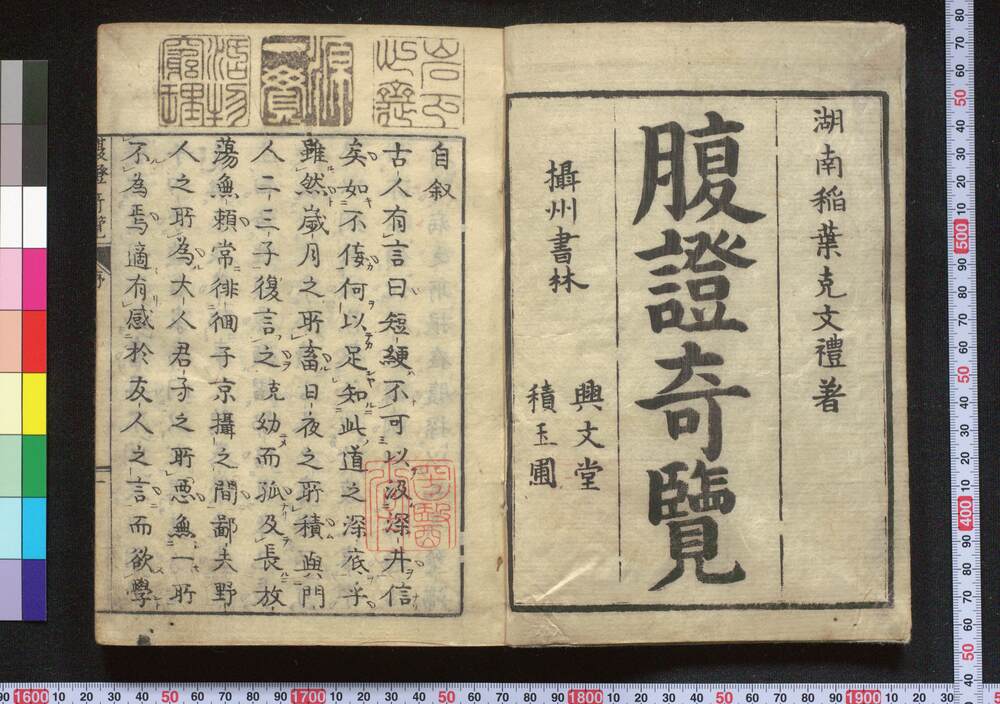 湖南稻葉克文禮著
腹證奇覽
攝州書林
興文堂
積玉圃
自叙
古人有言曰短綆不可以汲深井信
矣如不侮何以足知此道之深底乎
雖然歳月之所畜日夜之所積與門
人二三子復言之克幼而孤及長放
蕩無頼常徘徊于京攝之間鄙夫野
人之所為大人君子之所惡無一所
不為焉適有感於友人之言而欲學
腹證奇覽
序
一